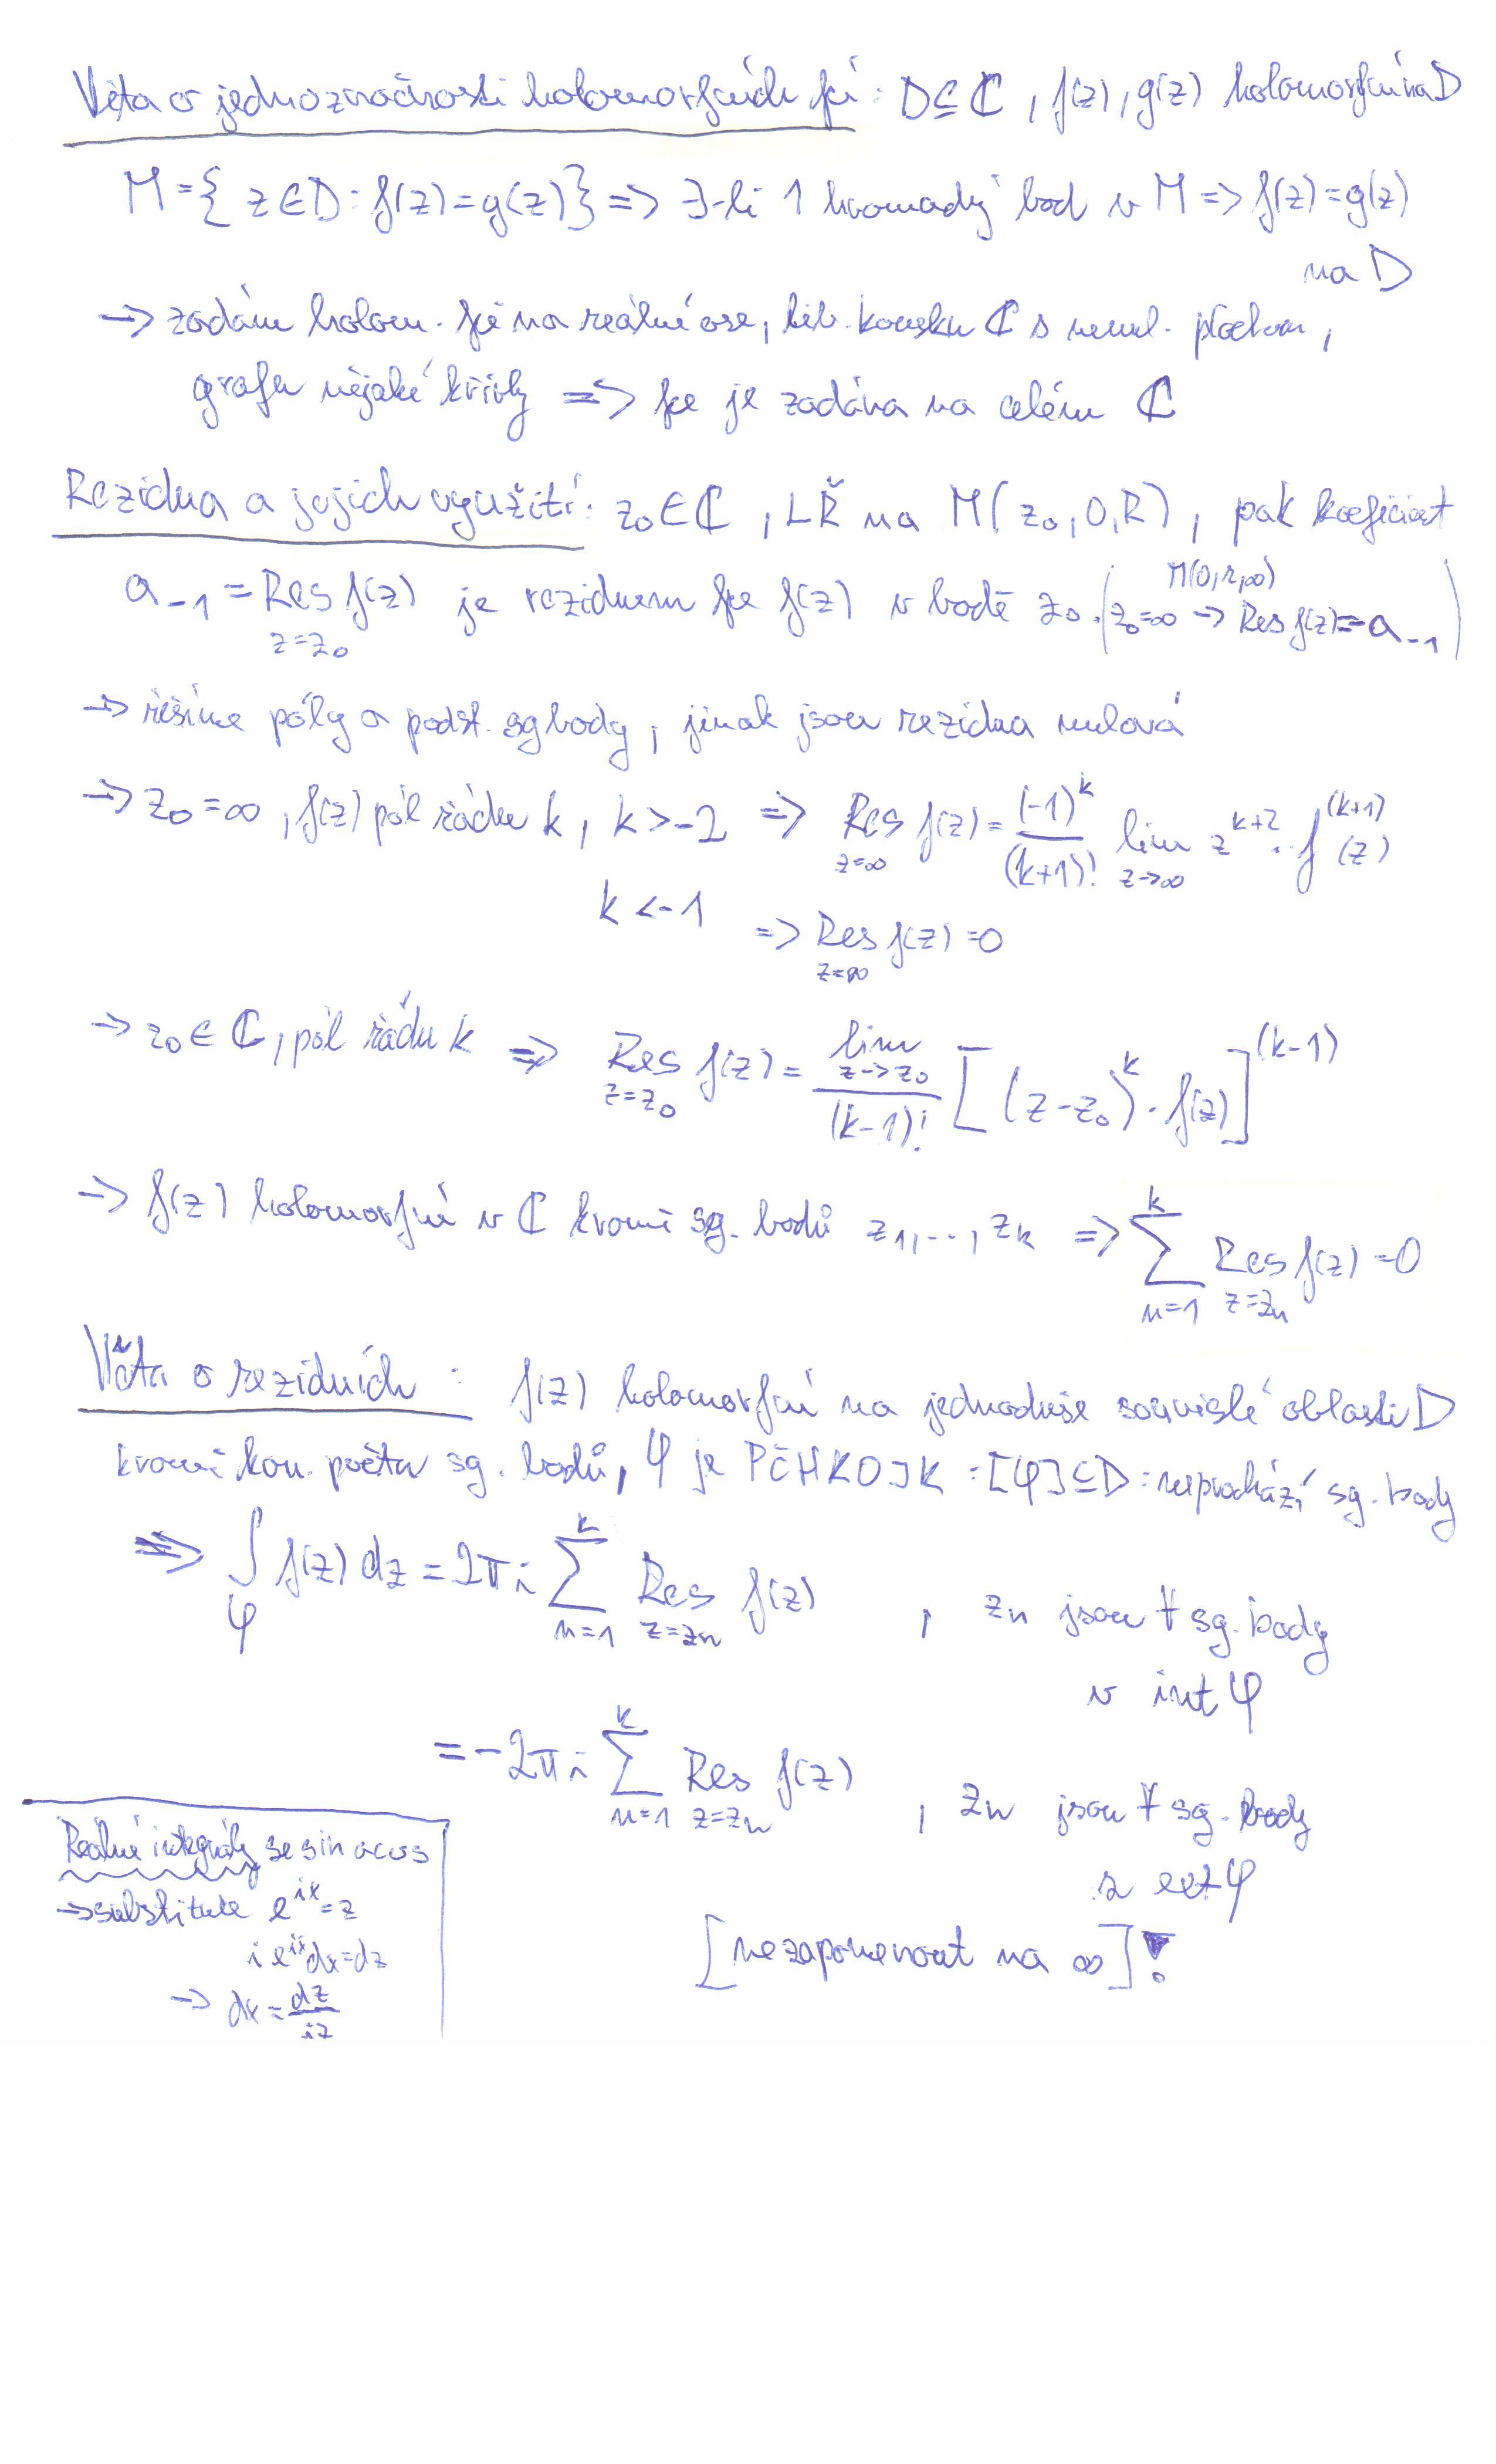 Věta o jednoznačnosti holomorfních fcí: D⊆ℂ, f(z), g(z) holomorfní na D
M={ z∈D: f(z)=g(z)} => ∃-li 1 hromadný bod v M => f(z)=g(z)
na D
-> zadám holom. fci na reálné ose, lib. kousku ℂ s nenul. plochou,
grafu nějaké křivky => fce je zadána na celém ℂ
Rezidua a jejich využití: z₀∈ℂ, LŘ na M(z₀,0,R), pak koeficient
a₋₁ = Res f(z) je reziduem fce f(z) v bodě z₀. (z₀=∞ -> Res f(z)=-a₋₁)
z=z₀ M(0,r,∞)
-> řešíme póly a podst. sg body, jinak jsou rezidua nulová
-> z₀=∞, f(z) pól řádu k, k>-2 => Res_{z=∞} f(z) = (-1)^k/(k+1)! lim_{z->∞} z^{k+2} · f^{(k+1)}(z)
k<-1 => Res_{z=∞} f(z)=0
-> z₀∈ℂ, pól řádu k => Res_{z=z₀} f(z) = lim_{z->z₀}/(k-1)! [(z-z₀)^k · f(z)]^{(k-1)}
-> f(z) holomorfní v ℂ kromě sg. bodů z₁,...,z_k => ∑_{n=1}^{k} Res_{z=z_n} f(z)=0
Věta o reziduích: f(z) holomorfní na jednoduše souvislé oblasti D
kromě kon. počtu sg. bodů, φ je PČHKOJK : [φ]⊆D : neprochází sg. body
=> ∫_φ f(z) dz = 2πi ∑_{n=1}^{k} Res_{z=z_n} f(z) , z_n jsou ∀ sg. body
v int φ
= -2πi ∑_{n=1}^{k} Res_{z=z_n} f(z) , z_n jsou ∀ sg. body
z ext φ
[nezapomenout na ∞]!
Reálné integrály se sin a cos
-> substituce e^{ix}=z
i e^{ix}dx=dz
-> dx = dz/iz